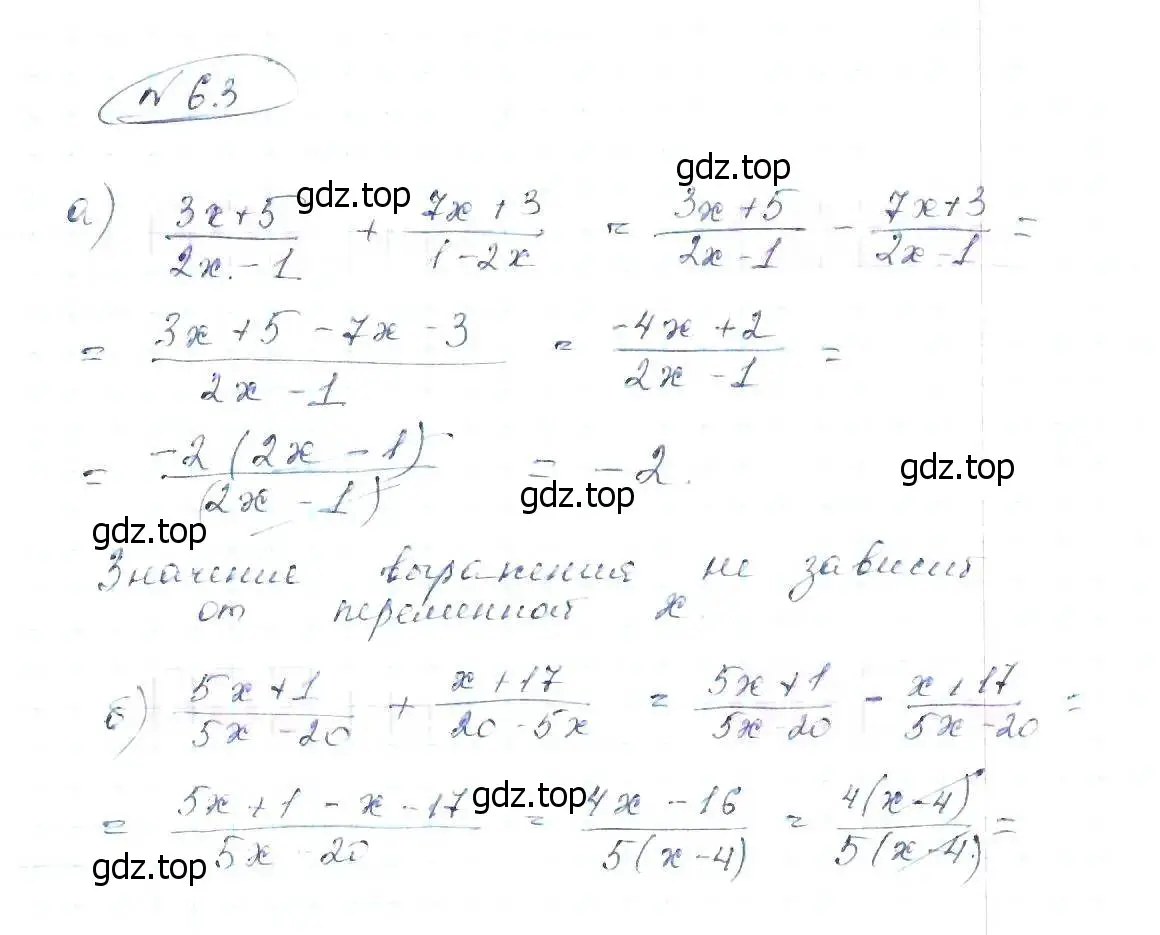 № 6.3
а) (3x+5)/(2x-1) + (7x+3)/(1-2x) = (3x+5)/(2x-1) - (7x+3)/(2x-1) =
= (3x+5-7x-3)/(2x-1) = (-4x+2)/(2x-1) =
= (-2(2x-1))/((2x-1)) = -2.
Значение выражения не зависит
от переменной x.
б) (5x+1)/(5x-20) + (x+17)/(20-5x) = (5x+1)/(5x-20) - (x+17)/(5x-20) =
= (5x+1-x-17)/(5x-20) = (4x-16)/(5(x-4)) = (4(x-4))/(5(x-4)) =
gdz.top
gdz.top
gdz.top
gdz.top
gdz.top
gdz.top
gdz.top